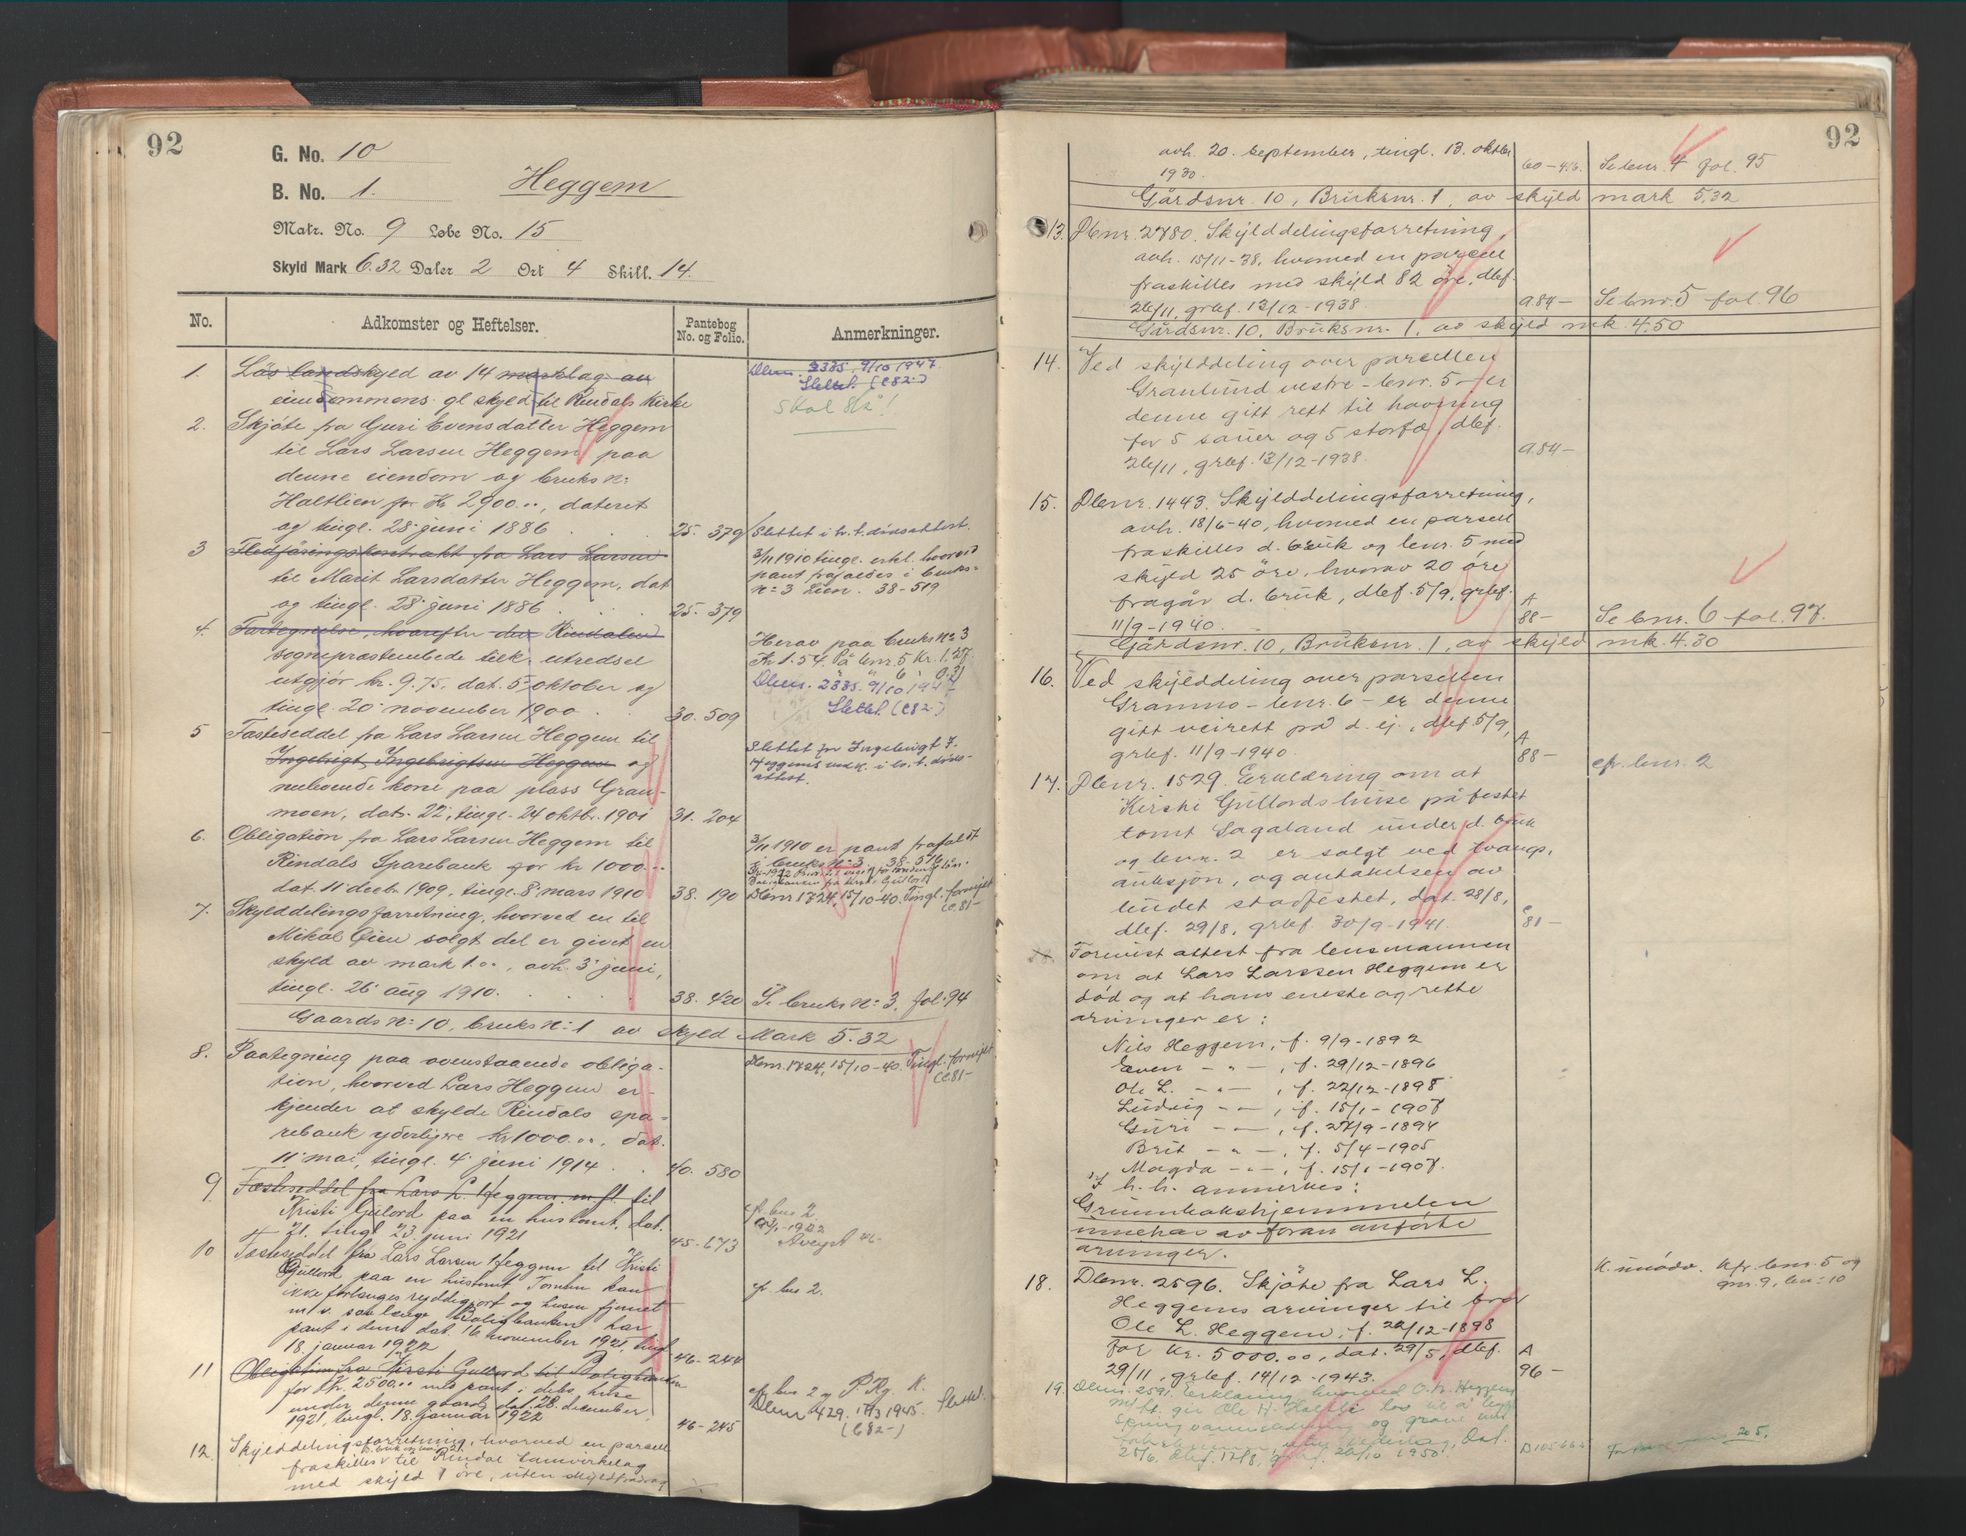 92
G. No. 10
B. No. 1.
Heggem
Matr. No. 9 Løbe No. 15
Skyld Mark 6.32 Daler 2 Ort 4 Skill. 14.
No. Adkomster og Heftelser. Pantebog No. og Folio. Anmerkninger.
1. Løs landskyld av 14 marklag av Dbnr. 2335. 9/10 1947.
eiendommens gl skyld til Rindals Kirke Slettet (C82-)
Skal stå!
2. Skjøte fra Guri Evensdatter Heggem
til Lars Larsen Heggem paa
denne eiendom og bruks n:
Haltlien for Kr 2900.., dateret
og tingl. 28 juni 1886 25. 379 Slettet i h. t. dødsattest.
3 Fledføringskontrakt fra Lars Larsen 3/11 1910 tingl. erkl. hvorved
til Marit Larsdatter Heggem, dat pant frafaldes i bruks-
og tingl. 28 juni 1886 25. 379 n: 3 Lien. 38-519
4. Fartegnelse, hvorefter den Rindalens Herav paa bruks n: 3
sogneprestembede tilk. utredsel Kr 1.54. På bnr. 5 Kr. 1,27
utgjør kr. 9.75. dat. 5 oktober og Dbnr. 2335. 9/10 1947
tingl. 20 november 1900 30. 509 Slettet. (C82-)
5 Fæsteseddel fra Lars Larsen Heggem til Slettet for Ingebrigt I.
Ingebrigt Ingebrigtsen Heggem og Heggems vedk. i h. t. døds-
nuboende kone paa plass Gran- attest.
moen, dat. 22, tingl. 24 oktbr. 1901 31. 204
6. Obligation fra Lars Larsen Heggem til 3/11 1910 er pant frafaldt
Rindals Sparebank for kr 1000... i bruks n: 3. 38-519
dat. 11 decbr 1909, tingl. 8 mars 1910 38. 190 Dbnr 1724, 15/10-40. Tingl. fornyet
C81-
7. Skylddelingsforretning, hvorved en til
Mikal Øien solgt del er givet en
skyld av mark 1..., avh. 3 juni,
tingl. 26 aug 1910. 38. 420 S. bruks n: 3, fol: 94
Gaards n: 10, bruks n: 1 av skyld Mark 5.32
8. Paategning paa ovenstaaende obliga- Dbnr. 1724, 15/10-40. Tingl. fornyet
tion, hvorved Lars Heggem er- C81-
kjender at skylde Rindals spa-
rebank yderligere kr 1000..., dat.
11 mai, tingl. 4 juni 1914 40. 580
9. Fæsteseddel fra Lars L. Heggem m.fl. til
Kristi Gulord paa en hustomt, dat. cfr bnr 2
tingl 23 juni 1921 45-673
10 Fæsteseddel fra Lars Larsen Heggem til Kristi
Gullord paa en hustomt Tomten kan cfr bnr 2.
ikke forlanges ryddiggjort og husen fjernet
m. v. saalænge Boligbanken har
pant i dem dat. 16 november 1921, tingl
18 januar 1922 46-244
11 Obligation fra Kirsti Gullord til Boligbanken
for Kr. 2500... med pant i dets huse cfr bnr 2 og P. Rg. K.
under denne gaard, dat. 28. december Dbnr 429. 17/3 1945. Slettet.
1921, tingl. 18 januar 1922 46-245 (C82-)
12. Skylddelingsforretning, hvorved en parsell
fraskilles til Rindal Samvirkelag
med skyld 1 øre, uten skyldfradrag
92
avh. 20. September, tingl. 13. oktbr
1930. 60-416. Se bnr. 4 fol. 95
Gårdsnr. 10, Bruksnr. 1, av skyld mark 5,32
13. Dbnr. 2780. Skylddelingsforretning,
avh. 15/11-38, hvorved en parsell
fraskilles med skyld 82 øre, dbf.
26/11, grbf. 13/12-1938. A84- Se bnr 5 fol. 96
Gårdsnr. 10, Bruksnr. 1, av skyld mk. 4.50
14. Ved skylddeling over parsellen
Granlund vestre - bnr. 5 - er
denne gitt rett til havning
for 5 sauer og 5 storfæ, dbf.
26/11, grbf. 13/12-1938. A84-
15. Dbnr. 1443. Skylddelingsforretning,
avh. 18/6-40, hvorved en parsell
fraskilles d. bruk og bnr. 5 med
skyld 25 øre, hvorav 20 øre
fragår d. bruk, dbf. 5/9, grbf.
11/9-1940. A 88- Se bnr. 6 fol. 97.
Gårdsnr. 10, Bruksnr. 1, av skyld mk. 4.30
16. Ved skylddeling over parsellen
Granmo - bnr. 6 - er denne
gitt veirett på d. ej., dbf. 5/9,
grbf. 11/9-1940. A 88- cfr. bnr. 2
17. Dbnr. 1529. Erklæring om at
Kirsti Gullords huse på festet
tomt Sagaland under d. bruk
og bnr. 2 er solgt ved tvangs-
auksjon, og antakelsen av
budet stadfestet, dat. 28/8,
dbf. 29/8, grbf. 30/9-1941. C 81-
Forevist attest fra lensmannen
om at Lars Larssen Heggem er
død og at hans eneste og rette
arvinger er:
Nils Heggem, f. 9/9-1892
Even - " - , f. 29/12-1896
Ole L. - " - , f. 22/12-1898
Ludvig - " - , f. 15/1-1907
Guri - " - , f. 27/9-1894
Brit - " - , f. 5/4-1905
Magda - " - , f. 15/1-1907.
I h. h. anmerkes:
Grunnbokshjemmelen
innehas av foran anførte
arvinger.
18. Dbnr. 2596. Skjøte fra Lars L. K. unødv. Kfr. bnr. 5 og
Heggems arvinger til bror gnr. 9, bnr: 10
Ole L. Heggem, f. 22/12-1898
for kr. 5000.00, dat. 29/5, dbf. A
29/11, grbf. 14/12-1943. 96-
19. Dbnr. 2591. Erklæring, hvorved O. L. Heggem
m/fl. gir Ole H. lov til å
og grave ned
Dat.
25/6, dbf. 12/8, 26/10 1950.